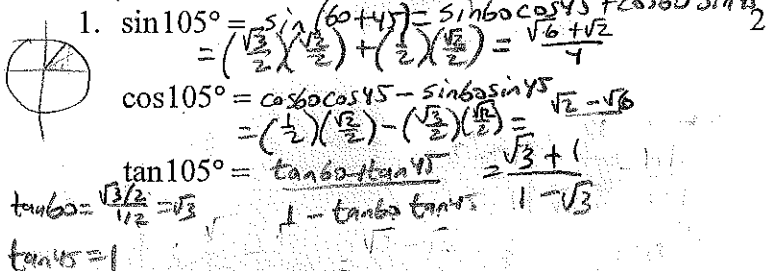 1. sin105° = sin(60+45) = sin60cos45 + cos60 sin45 2
= (√3/2)(√2/2) + (1/2)(√2/2) = (√6+√2)/4
cos105° = cos60cos45 – sin60sin45
= (1/2)(√2/2) – (√3/2)(√2/2) = √2–√6
tan105° = (tan60+tan45)/(1 – tan60 tan45) = (√3+1)/(1–√3)
tan60 = (√3/2)/(1/2) = √3
tan45 = 1